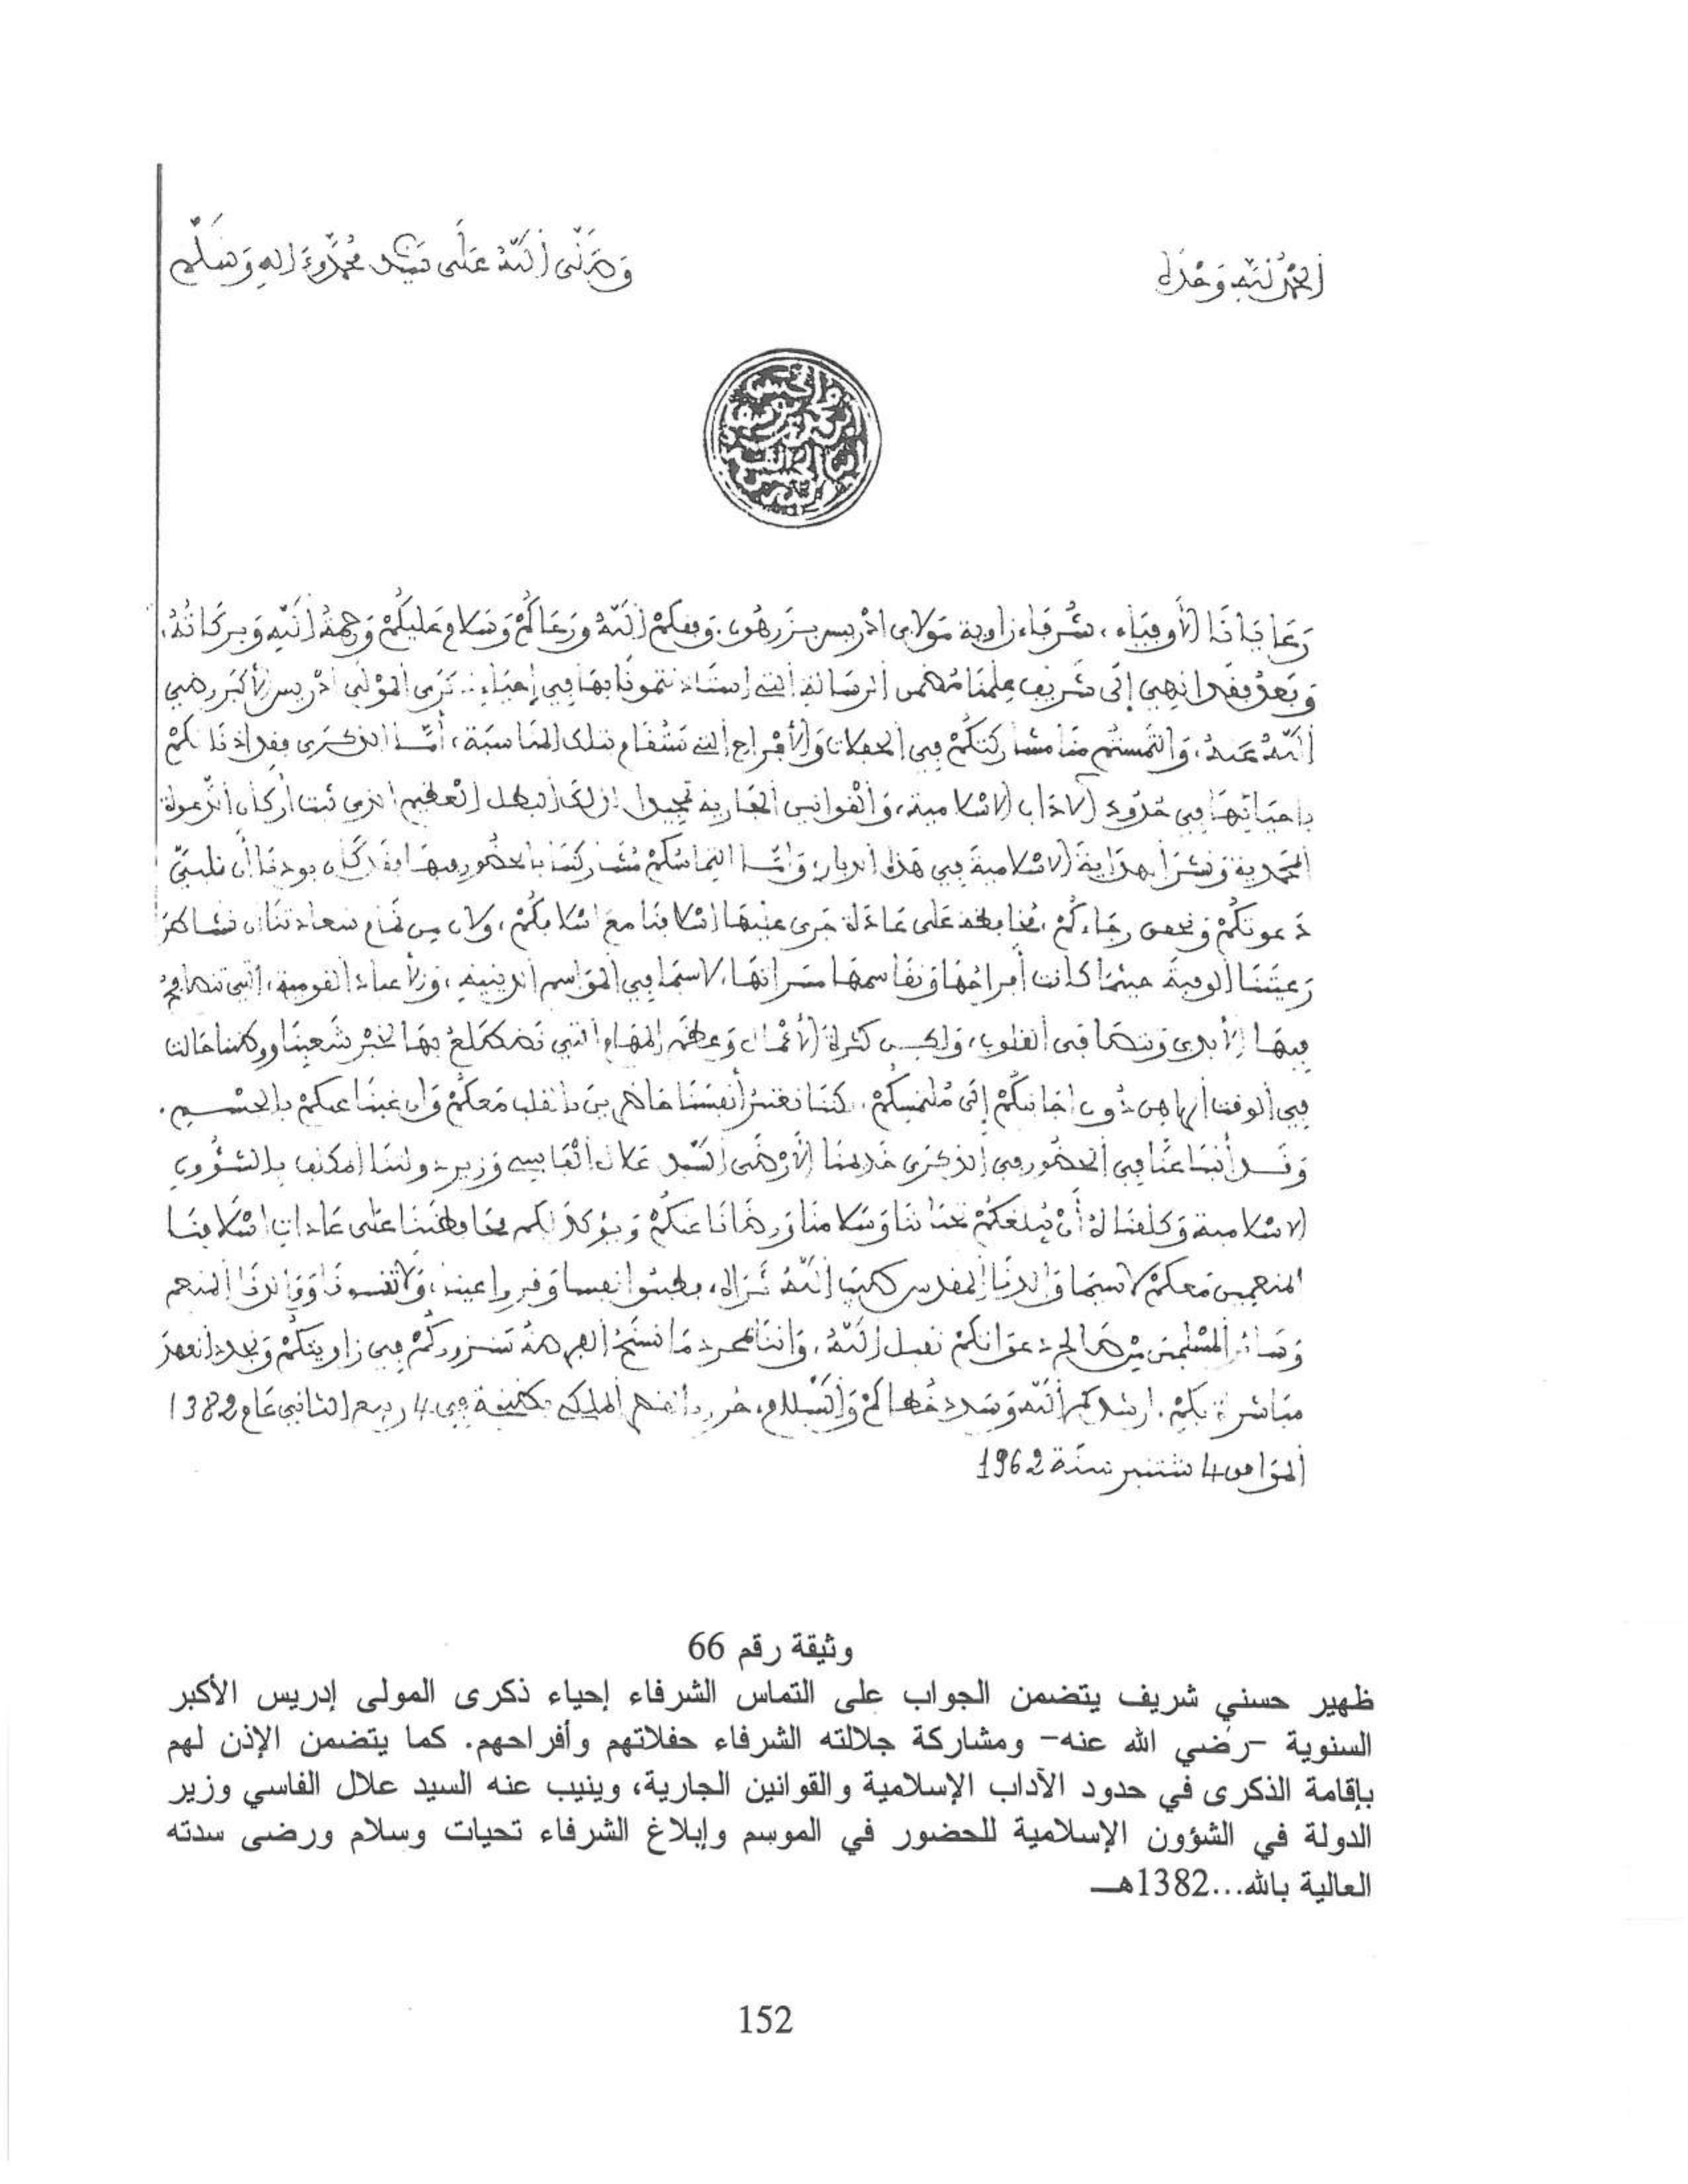 الحمد لله وحده
وصلى الله على سيدنا محمد وءاله وسلم
رعايانا الأوفياء، شرفاء زاوية مولاي ادريس بزرهون. وفقكم الله ورعاكم وسلام عليكم ورحمة الله وبركاته.
وبعد فقد انهي إلى شريف علمنا مضمن الرسالة التي استأذنتمونا بها في إحياء ذكرى المولى ادريس الأكبر رضي
الله عنه، والتمستم منا مشاركتكم في الحفلات والأفراح التي ستقام بتلك المناسبة، أمّا الذكرى فقد اذنا لكم
باحيائها في حدود الاداب الاسلامية، والقوانين الجارية تمجيدا لذلك البطل العظيم الذي ثبت أركان الدعوة
المحمدية ونشر الهداية الاسلامية في هذه الديار، وامّا التماسكم مشاركتنا بالحضور فيها فقد كان بودنا أن نلبي
دعوتكم ونحقق رجاءكم، محافظة على عادة جرى عليها اسلافنا مع اسلافكم، ولان من تمام سعادتنا ان نشاطر
رعيتنا الوفية حيثما كانت أفراحها ونقاسمها مسراتها، لاسيما في المواسم الدينية، والأعياد القومية، التي تتصافح
فيها الأيدي وتتصافى القلوب، ولكن كثرة الأعمال وعظم المهام التي نضطلع بها لخير شعبنا ووطننا حالت
في الوقت الراهن دون اجابتكم إلى ملتمسكم. كنا نعتبر أنفسنا حاضرين بالقلب معكم وان غبنا عنكم بالجسم.
وقد أنبنا عنا في الحضور في الذكرى خديمنا الأرضى السيد علال الفاسي وزير دولتنا المكلف بالشؤون
الاسلامية وكلفناه أن يبلغكم تحياتنا وسلامنا ورضانا عنكم ويؤكد لكم محافظتنا على عادات اسلافنا
المنعمين معكم لاسيما والدنا المقدس طيب الله ثراه، فطيبوا نفسا وقروا عينا، ولا تنسونا ووالدنا المنعم
وسائر المسلمين من صالح دعواتكم تقبل الله، واننا بمجرد ما تسنح الفرصة سنزوركم في زاويتكم ونجدد العهد
مباشرة بكم. ارشدكم الله وسدد خطاكم والسلام، حرر بالقصر الملكي بطنجة في 4 ربيع الثاني عام 1382
الموافق 4 شتنبر سنة 1962
وثيقة رقم 66
ظهير حسني شريف يتضمن الجواب على التماس الشرفاء إحياء ذكرى المولى إدريس الأكبر
السنوية -رضي الله عنه- ومشاركة جلالته الشرفاء حفلاتهم وأفراحهم. كما يتضمن الإذن لهم
بإقامة الذكرى في حدود الآداب الإسلامية والقوانين الجارية، وينيب عنه السيد علال الفاسي وزير
الدولة في الشؤون الإسلامية للحضور في الموسم وإبلاغ الشرفاء تحيات وسلام ورضى سدته
العالية بالله...1382هـ
152